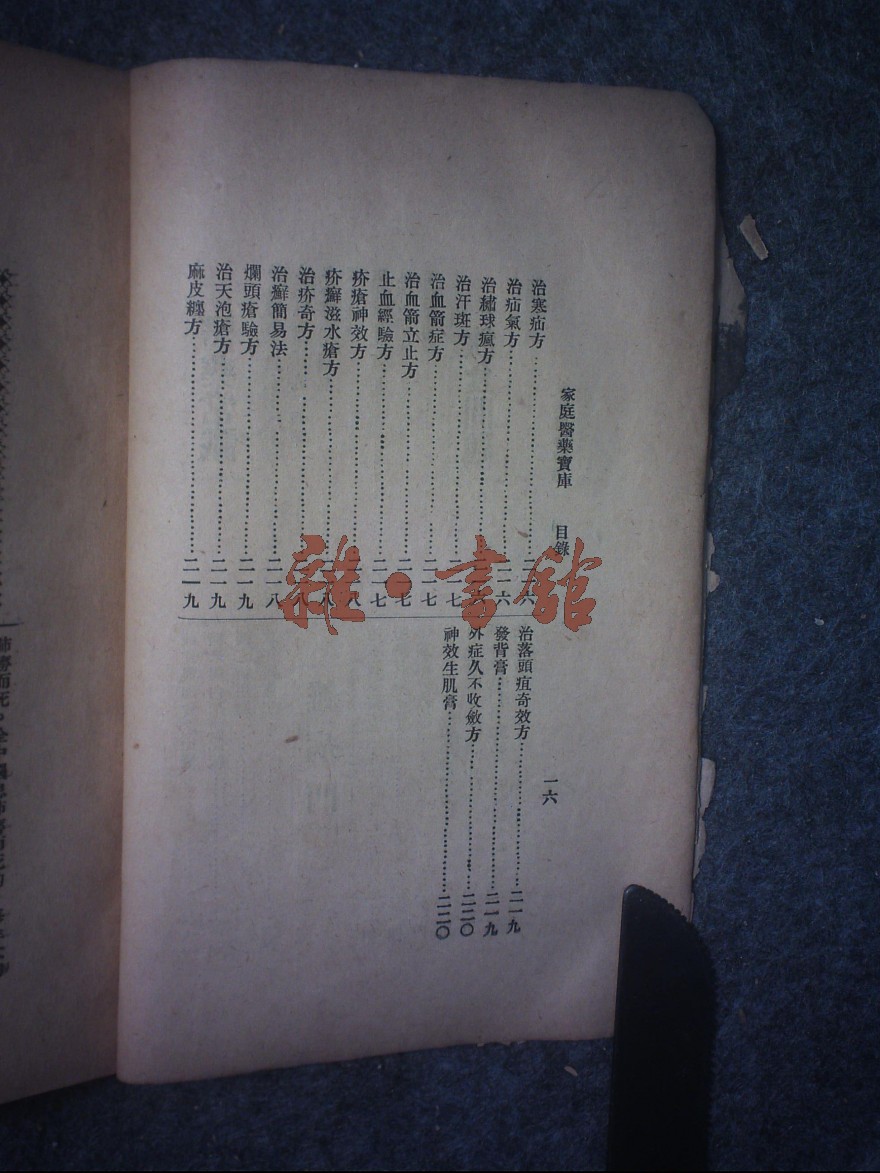 家庭醫藥寶庫　目錄　一六
治寒疝方⋯⋯二一六
治疝氣方⋯⋯二一六
治繡球瘋方⋯⋯
治汗斑方⋯⋯二一七
治血箭症方⋯⋯二一七
治血箭立止方⋯⋯二一七
止血經驗方⋯⋯二一七
疥瘡神效方⋯⋯二一八
疥癬滋水瘡方⋯⋯八
治疥奇方⋯⋯八
治癬簡易法⋯⋯二一八
爛頭瘡驗方⋯⋯二一九
治天泡瘡方⋯⋯二一九
麻皮纏方⋯⋯二一九
治落頭疽奇效方⋯⋯二一九
發背膏⋯⋯二一九
外症久不收斂方⋯⋯二二〇
神效生肌膏⋯⋯二二〇
雜·書館